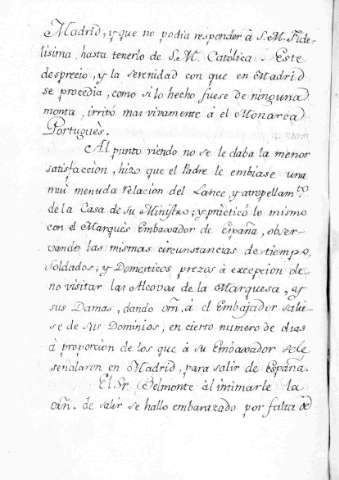 Madrid, y que no podia responder â S. M. Fide-
lisima, hasta tenerlo de S. M. Catòlica. Este
desprecio, y la serenidad con que en Madrid
se procedia, como si lo hecho fuese de ninguna
monta, irritò mas vivamente â el Monarca
Portuguès.
Al punto viendo no se le daba la menor
satisfaccion, hizo que el Padre le embiase una
mui menuda relacion del Lance, y atropellam.to
de la Casa de su Ministro; y pràcticò lo mismo
con el Marquès Embaxador de España, obser-
vando las mismas circunstancias de tiempo,
Soldados, y Domesticos prezos â excepcion de
no visitar las Alcovas de la Marquesa, y
sus Damas, dando orn. â el Embajador salie-
se de sus Dominios, en cierto numero de dias
â proporcion de los que â su Embaxador se le
señalaron en Madrid, para salir de España.
El Sr. Belmonte âl intimarle la
orn. de salir se hallo embarazado por falta de